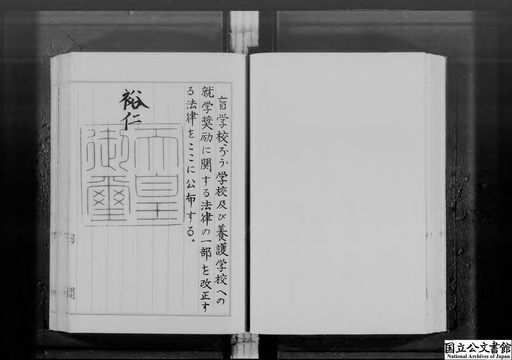 盲学校、ろう学校及び養護学校への
就学奨励に関する法律の一部を改正す
る法律をここに公布する。
裕仁
天皇
御璽
国立公文書館
National Archives of Japan